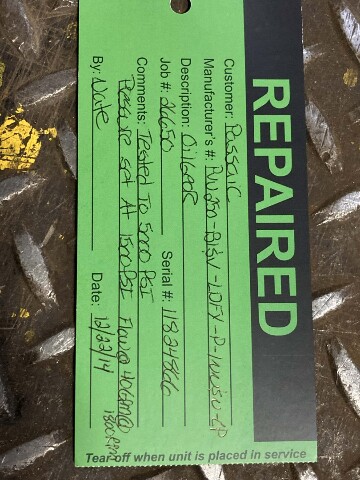 REPAIRED
Customer: Passaic
Manufacturer's #:
Description: Oilgear
Job #: 26650 Serial #: 11824866
Comments: Tested To 5000 PSI
Pressure set At 1500 PSI Flow @ 40 GPM @
1800 RPM
By: Nate Date: 12/22/14
Tear off when unit is placed in service